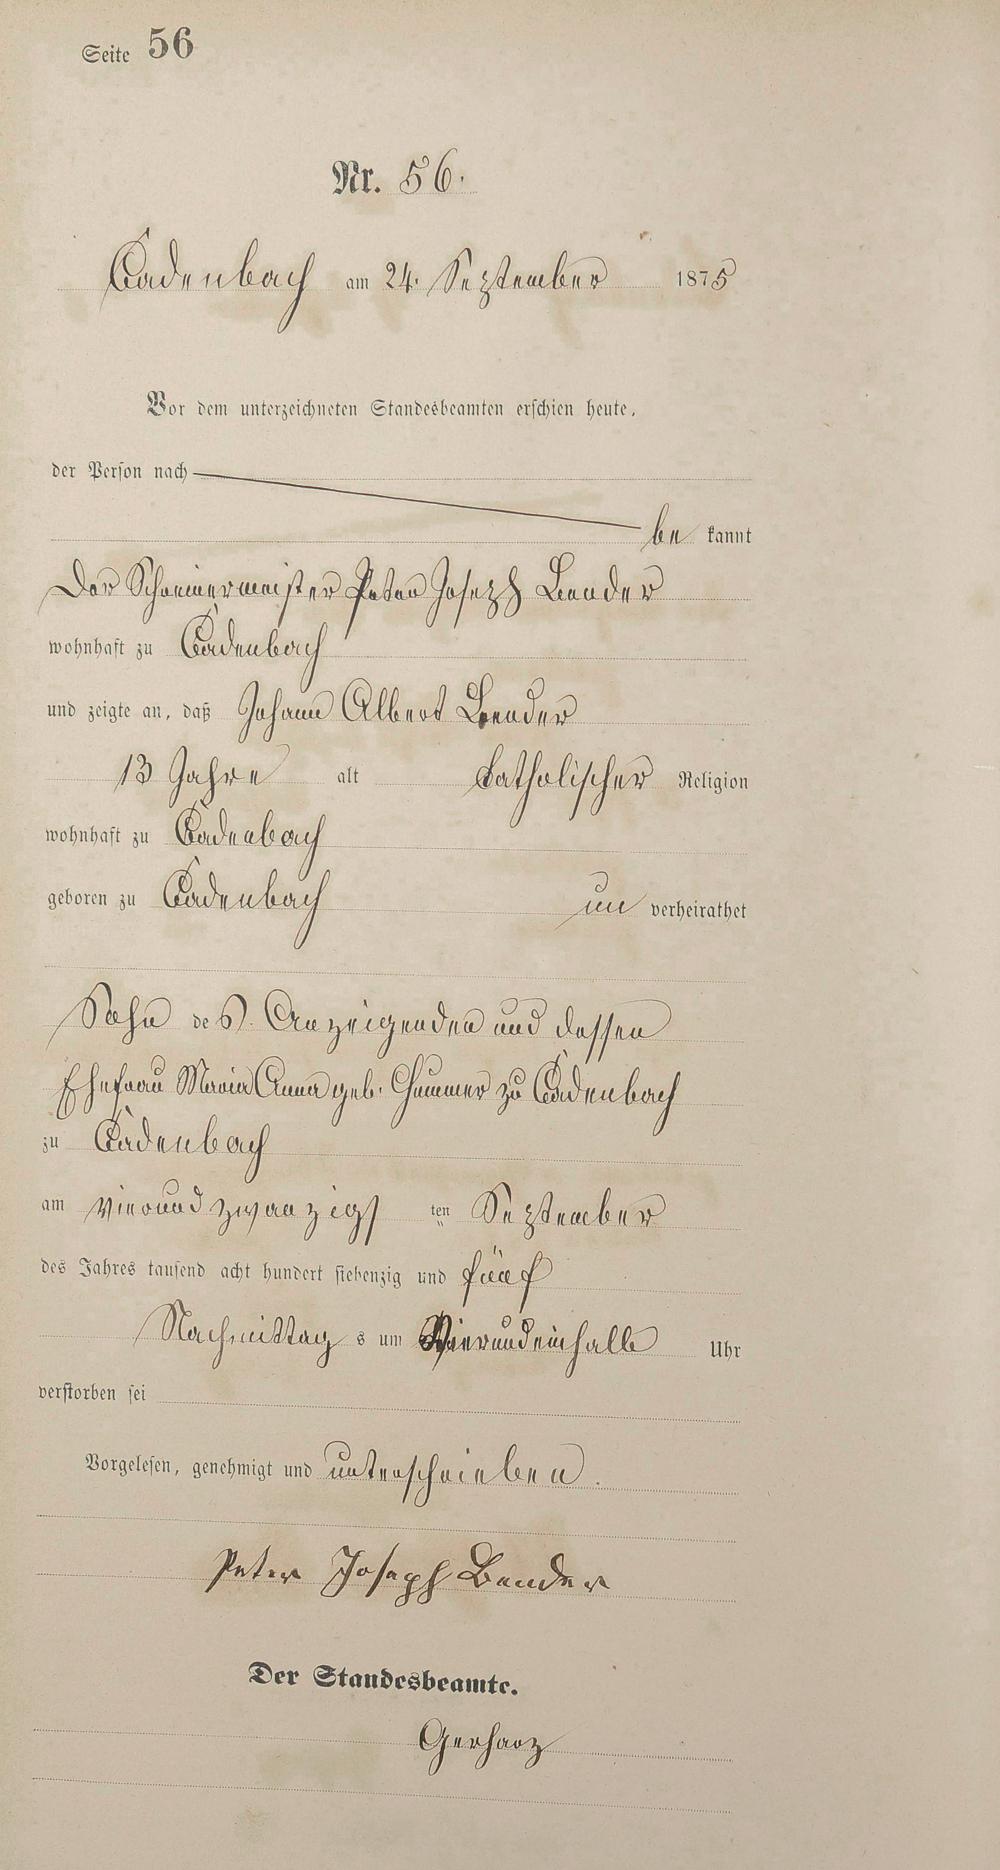 Seite 56
Nr. 56.
Cadenbach am 24. September 1875
Vor dem unterzeichneten Standesbeamten erschien heute,
der Person nach
be kannt
Der Schreinermeister Peter Joseph Bender
wohnhaft zu Cadenbach
und zeigte an, daß Johann Albert Bender
13 Jahre alt Catholischer Religion
wohnhaft zu Cadenbach
geboren zu Cadenbach un verheirathet
Sohn des Anzeigenden und dessen
Ehefrau Maria Anna geb. zu Cadenbach
zu Cadenbach
am vierundzwanzigs ten September
des Jahres tausend acht hundert siebenzig und fünf
Nachmittag s um Vierundeinhalb Uhr
verstorben sei
Vorgelesen, genehmigt und unterschrieben.
Peter Joseph Bender
Der Standesbeamte.
Gerharz